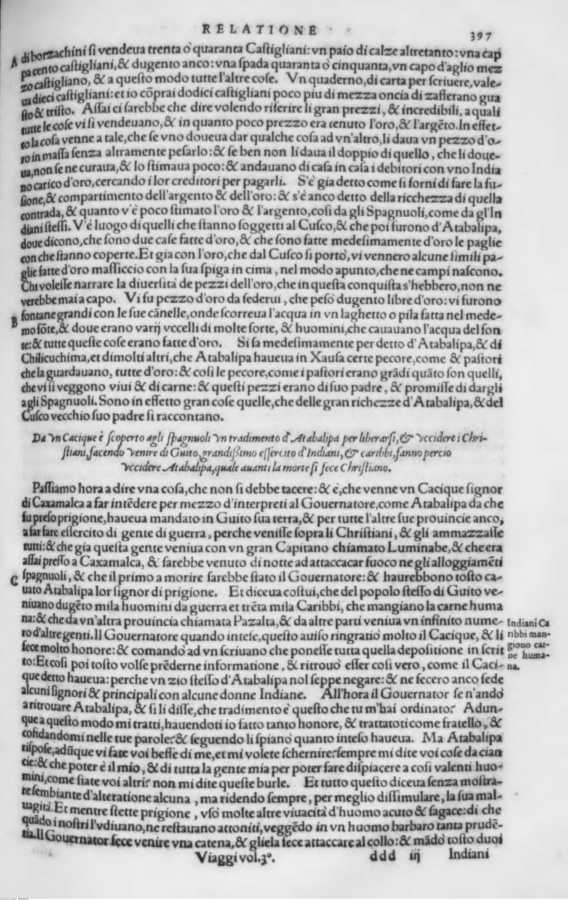 RELATIONE
397
A di borzachini si vendeua trenta ò quaranta Castigliani: vn paio di calze altretanto: vna cap
pa cento castigliani, & dugento anco: vna spada quaranta ò cinquanta, vn capo d'aglio mez
zo castigliano, & a questo modo tutte l'altre cose. Vn quaderno, di carta per scriuere, vale-
ua dieci castigliani: et io cõprai dodici castigliani poco piu di mezza oncia di zafferano gua
sto & tristo. Assai ci sarebbe che dire volendo riferire li gran prezzi, & incredibili, a quali
tutte le cose vi si vendeuano, & in quanto poco prezzo era tenuto l'oro, & l'argẽto. In effet-
to la cosa venne a tale, che se vno doueua dar qualche cosa ad vn'altro, li daua vn pezzo d'o-
ro in massa senza altramente pesarlo: & se ben non li daua il doppio di quello, che li doue-
ua, non se ne curaua, & lo stimaua poco: & andauano di casa in casa i debitori con vno India
no carico d'oro, cercando i lor creditori per pagarli. S'è gia detto come si fornì di fare la fu-
sione, & compartimento dell'argento & dell'oro: & s'è anco detto della ricchezza di quella
contrada, & quanto v'è poco stimato l'oro & l'argento, cosi da gli Spagnuoli, come da gl'In
diani stessi. V'è luogo di quelli che stanno soggetti al Cusco, & che poi furono d'Atabalipa,
doue dicono, che sono due case fatte d'oro, & che sono fatte medesimamente d'oro le paglie
con che stanno coperte. Et gia con l'oro, che dal Cusco si portò, vi vennero alcune simili pa-
glie fatte d'oro massiccio con la sua spiga in cima, nel modo apunto, che ne campi nascono.
Chi volesse narrare la diuersità de pezzi dell'oro, che in questa conquista s'hebbero, non ne
verebbe mai a capo. Vi fu pezzo d'oro da sederui, che pesò dugento libre d'oro: vi furono
B fontane grandi con le sue cãnelle, onde scorreua l'acqua in vn laghetto o pila fatta nel mede-
mo fõte, & doue erano varij vccelli di molte sorte, & huomini, che cauauano l'acqua del fon
te: & tutte queste cose erano fatte d'oro. Si sa medesimamente per detto d'Atabalipa, & di
Chilicuchima, et di molti altri, che Atabalipa haueua in Xausa certe pecore, come & pastori
che la guardauano, tutte d'oro: & cosi le pecore, come i pastori erano grãdi quãto son quelli,
che vi si veggono viui & di carne: & questi pezzi erano di suo padre, & promisse di dargli
a gli Spagnuoli. Sono in effetto gran cose quelle, che delle gran richezze d'Atabalipa, & del
Cusco vecchio suo padre si raccontano.
Da vn Cacique è scoperto agli spagnuoli vn tradimento d'Atabalipa per liberarsi, & vccidere i Chri-
stiani, facendo venire di Guito, grandissimo essercito d'Indiani, & caribbi, fanno percio
vccidere Atabalipa, quale auanti la morte si fece Christiano.
Passiamo hora a dire vna cosa, che non si debbe tacere: & è, che venne vn Cacique signor
di Caxamalca a far intẽdere per mezzo d'interpreti al Gouernatore, come Atabalipa da che
fu preso prigione, haueua mandato in Guito sua terra, & per tutte l'altre sue prouincie anco,
a far fare essercito di gente di guerra, perche venisse sopra li Christiani, & gli ammazzasse
tutti: & che gia questa gente veniua con vn gran Capitano chiamato Luminabe, & che era
assai presso a Caxamalca, & sarebbe venuto di notte ad attaccar fuoco ne gli alloggiamẽti
C spagnuoli, & che il primo a morire sarebbe stato il Gouernatore: & haurebbono tosto ca-
uato Atabalipa lor signor di prigione. Et diceua costui, che del popolo stesso di Guito ve-
niuano dugẽto mila huomini da guerra et trẽta mila Caribbi, che mangiano la carne huma
na: & che da vn'altra prouincia chiamata Pazalta, & da altre parti veniua vn infinito nume-
ro d'altre genti. Il Gouernatore quando intese, questo auiso ringratiò molto il Cacique, & li
fece molto honore: & comandò ad vn scriuano che ponesse tutta quella depositione in scrit
to: Et cosi poi tosto volse prẽderne informatione, & ritrouò esser cosi vero, come il Caci-
que detto haueua: perche vn zio stesso d'Atabalipa nol seppe negare: & ne fecero anco fede
alcuni signori & principali con alcune donne Indiane. All'hora il Gouernator se n'andò
a ritrouare Atabalipa, & sì li disse, che tradimento è questo che tu m'hai ordinato: Adun-
que a questo modo mi tratti, hauendoti io fatto tanto honore, & trattatoti come fratello, &
cõfidandomi nelle tue parole: & seguendo li spianò quanto inteso haueua. Ma Atabalipa
rispose, adũque vi fate voi beffe di me, et mi volete schernire: sempre mi dite voi cose da cian
cie: & che poter è il mio, & di tutta la gente mia per poter fare dispiacere a cosi valenti huo-
mini, come siate voi altri: non mi dite queste burle. Et tutto questo diceua senza mostra-
re sembiante d'alteratione alcuna, ma ridendo sempre, per meglio dissimulare, la sua mal-
uagità. Et mentre stette prigione, vsò molte altre viuacità d'huomo acuto & sagace: di che
quãdo i nostri l'vdiuano, ne restauano attoniti, veggẽdo in vn huomo barbaro tanta prudẽ-
tia. Il Gouernator fece venire vna catena, & gliela fece attaccare al collo: & mãdò tosto duoi
Indiani Ca
ribbi man-
giono car-
ne huma-
na.
Viaggi vol.3º.
ddd iij
Indiani